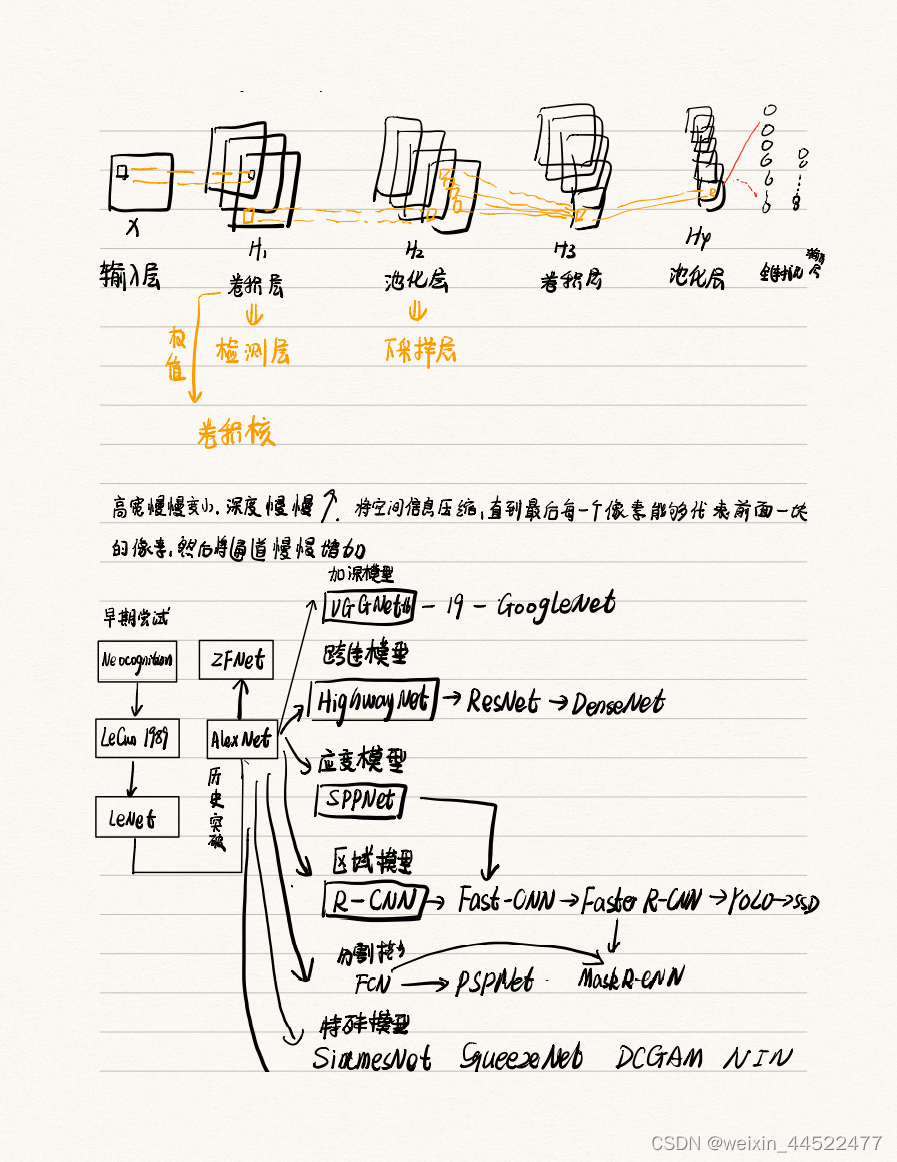 X
H1
H2
H3
H4
输入层
卷积层
池化层
卷积层
池化层
输出层
权值
检测层
下采样层
卷积核
高宽慢慢变小,深度慢慢↗. 将空间信息压缩,直到最后每一个像素能够代表前面一块
的像素,然后将通道慢慢增加
加深模型
早期尝试
VGGNet16 - 19 - GoogleNet
跨连模型
Neocognition
ZFNet
HighwayNet → ResNet → DenseNet
LeCun 1989
AlexNet
应变模型
历史突破
SPPNet
LeNet
区域模型
R-CNN → Fast-CNN → Faster R-CNN → YOLO → SSD
分割
FCN → PSPNet
Mask R-CNN
特殊模型
SiamesNet SqueezeNet DCGAM NIN
CSDN @weixin_44522477